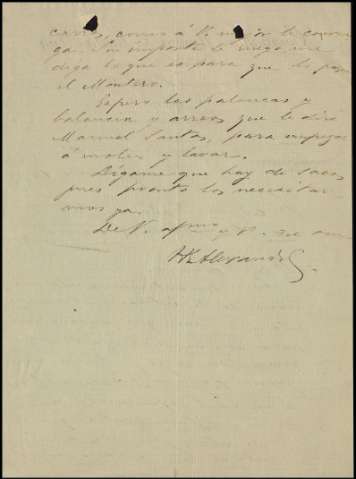 como á V. le conven
ga. Su importe le ruego me
diga lo que es para que lo pague
el Montero.
Espero las palancas y
balancin y arreos que le dirá
Manuel Santos, para empezar
á moler y lavar.
Dígame que hay de sacos
pues pronto los necesitar
emos ya.
De V. afmo y S. S.